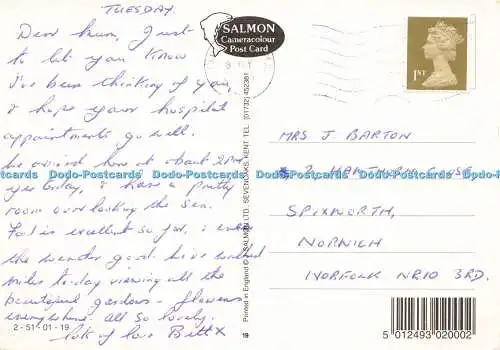 TUESDAY.
Dear Mum, Just
to let you know
I've been thinking of you,
I hope your hospital
appointments go well.
We arrived here at about 2pm
yesterday, I have a pretty
room overlooking the sea.
Food is excellent so far, I
the weather good. I've walked
miles today viewing all the
beautiful gardens - flowers
everywhere. All so lovely.
lots of love X
2-51-01-19
SALMON
Cameracolour
Post Card
Printed in England © J SALMON LTD. SEVENOAKS, KENT TEL. (01732) 452381
19
1ST
MRS J BARTON
2
SPIXWORTH,
NORWICH
NORFOLK NR10 3RD.
5 012493 020002
Dodo-Postcards Dodo-Postcards Dodo-Postcards Dodo-Postcards